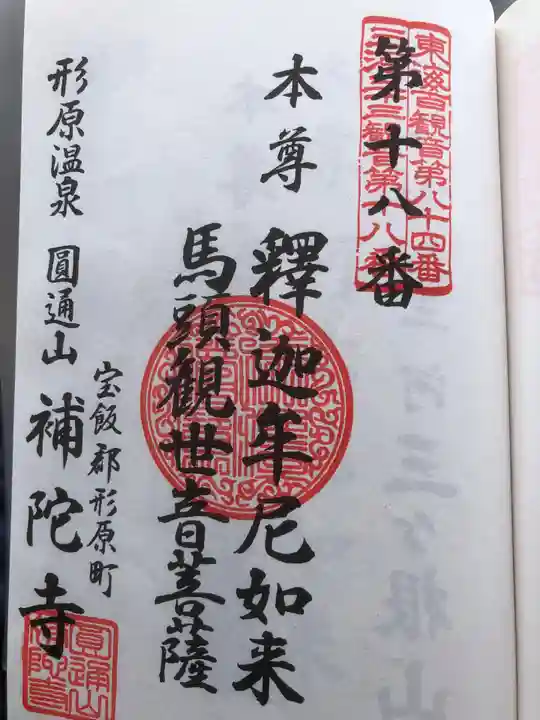 東海百観音第八十四番
三河三十三観音第十八番
第十八番
本尊 釋迦牟尼如来
馬頭觀世音菩薩
宝飯郡形原町
形原温泉 圓通山 補陀寺
圓通山
補陀寺